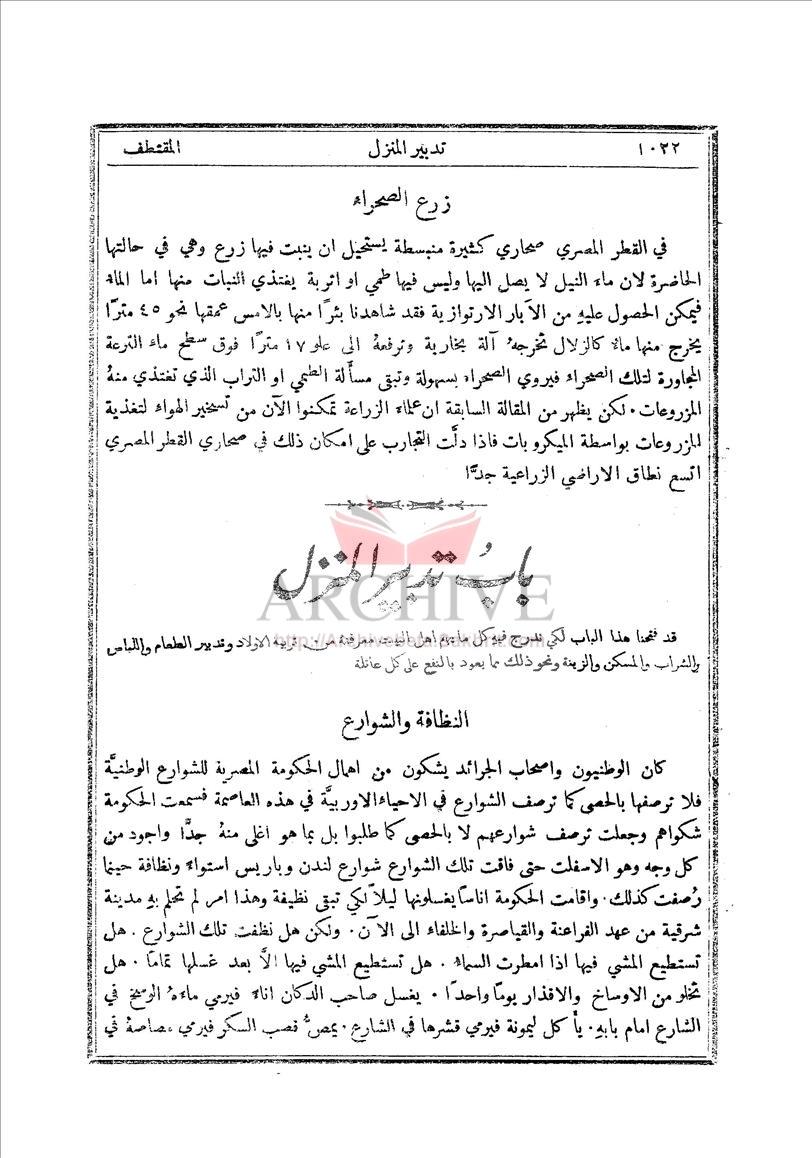 ١٠٢٢ تدبير المنزل المقتطف
زرع الصحراء
في القطر المصري صحاري كثيرة منبسطة يستحيل ان ينبت فيها زرع وهي في حالتها
الحاضرة لان ماء النيل لا يصل اليها وليس فيها طمي او اتربة يغتذي النبات منها اما الماء
فيمكن الحصول عليهِ من الآبار الارتوازية فقد شاهدنا بئرًا منها بالامس عمقها نحو ٤٥ مترًا
يخرج منها ماءٌ كالزلال تخرجهُ آلة بخارية وترفعهُ الى علو ١٧ مترًا فوق سطح ماء الترعة
المجاورة لتلك الصحراء فيروي الصحراء بسهولة وتبقى مسأَلة الطمي او التراب الذي تغتذي منهُ
المزروعات. لكن يظهر من المقالة السابقة ان علماء الزراعة تمكنوا الآن من تسخير الهواء لتغذية
المزروعات بواسطة الميكروبات فاذا دلَّت التجارب على امكان ذلك في صحاري القطر المصري
اتسع نطاق الاراضي الزراعية جدًّا
بابُ تدبير المنزل
ARCHIVE
قد فتحنا هذا الباب لكي ندرج فيهِ كل ما يهم اهل البيت معرفتهُ من تربية الاولاد وتدبير الطعام واللباس
والشراب والمسكن والزينة ونحو ذلك مما يعود بالنفع على كل عائلة
النظافة والشوارع
كان الوطنيون واصحاب الجرائد يشكون من اهمال الحكومة المصرية للشوارع الوطنيَّة
فلا ترصفها بالحصى كما ترصف الشوارع في الاحياء الاوربيَّة في هذه العاصمة فسمعت الحكومة
شكواهم وجعلت ترصف شوارعهم لا بالحصى كما طلبوا بل بما هو اغلى منهُ جدًّا واجود من
كل وجه وهو الاسفلت حتى فاقت تلك الشوارع شوارع لندن وباريس استواءً ونظافة حينما
رُصفت كذلك. واقامت الحكومة اناسًا يغسلونها ليلاً لكي تبقى نظيفة وهذا امر لم تحلم بهِ مدينة
شرقية من عهد الفراعنة والقياصرة والخلفاء الى الآن. ولكن هل نظفت تلك الشوارع. هل
تستطيع المشي فيها اذا امطرت السماء. هل تستطيع المشي فيها الاَّ بعد غسلها تمامًا. هل
تخلو من الاوساخ والاقذار يومًا واحدًا. يغسل صاحب الدكان اناءً فيرمي ماءهُ الوسخ في
الشارع امام بابهِ. يأكل ليمونة فيرمي قشرها في الشارع. يمصُّ قصب السكر فيرمي مصاصهُ في